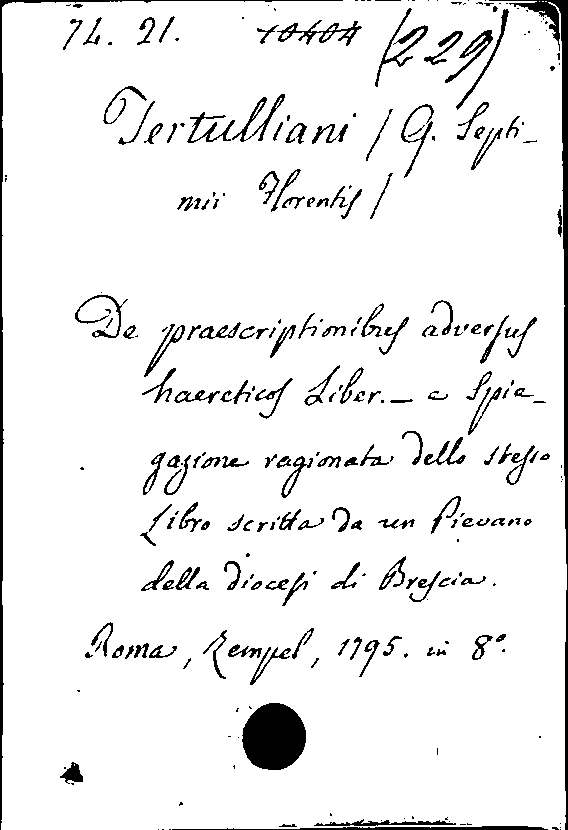 74. 21. 10404 (229)
Tertulliani / Q. Septi-
mii Florentis /
De praescriptionibus adversus
haereticos Liber. — e Spie-
gazione ragionata dello stesso
Libro scritta da un Pievano
della diocesi di Brescia.
Roma, Zempel, 1795. in 8°.